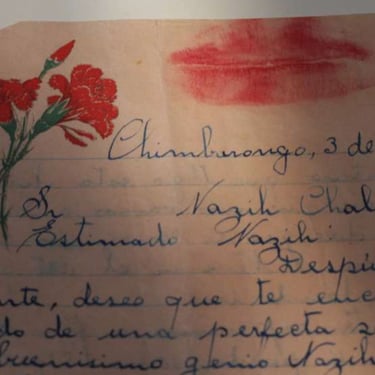 Chimbarongo, 3 de
Sr Nazih Chal
Estimado Nazih:
Despu
nte, deseo que te enc
do de una perfecta s
buenisimo genio Nazih